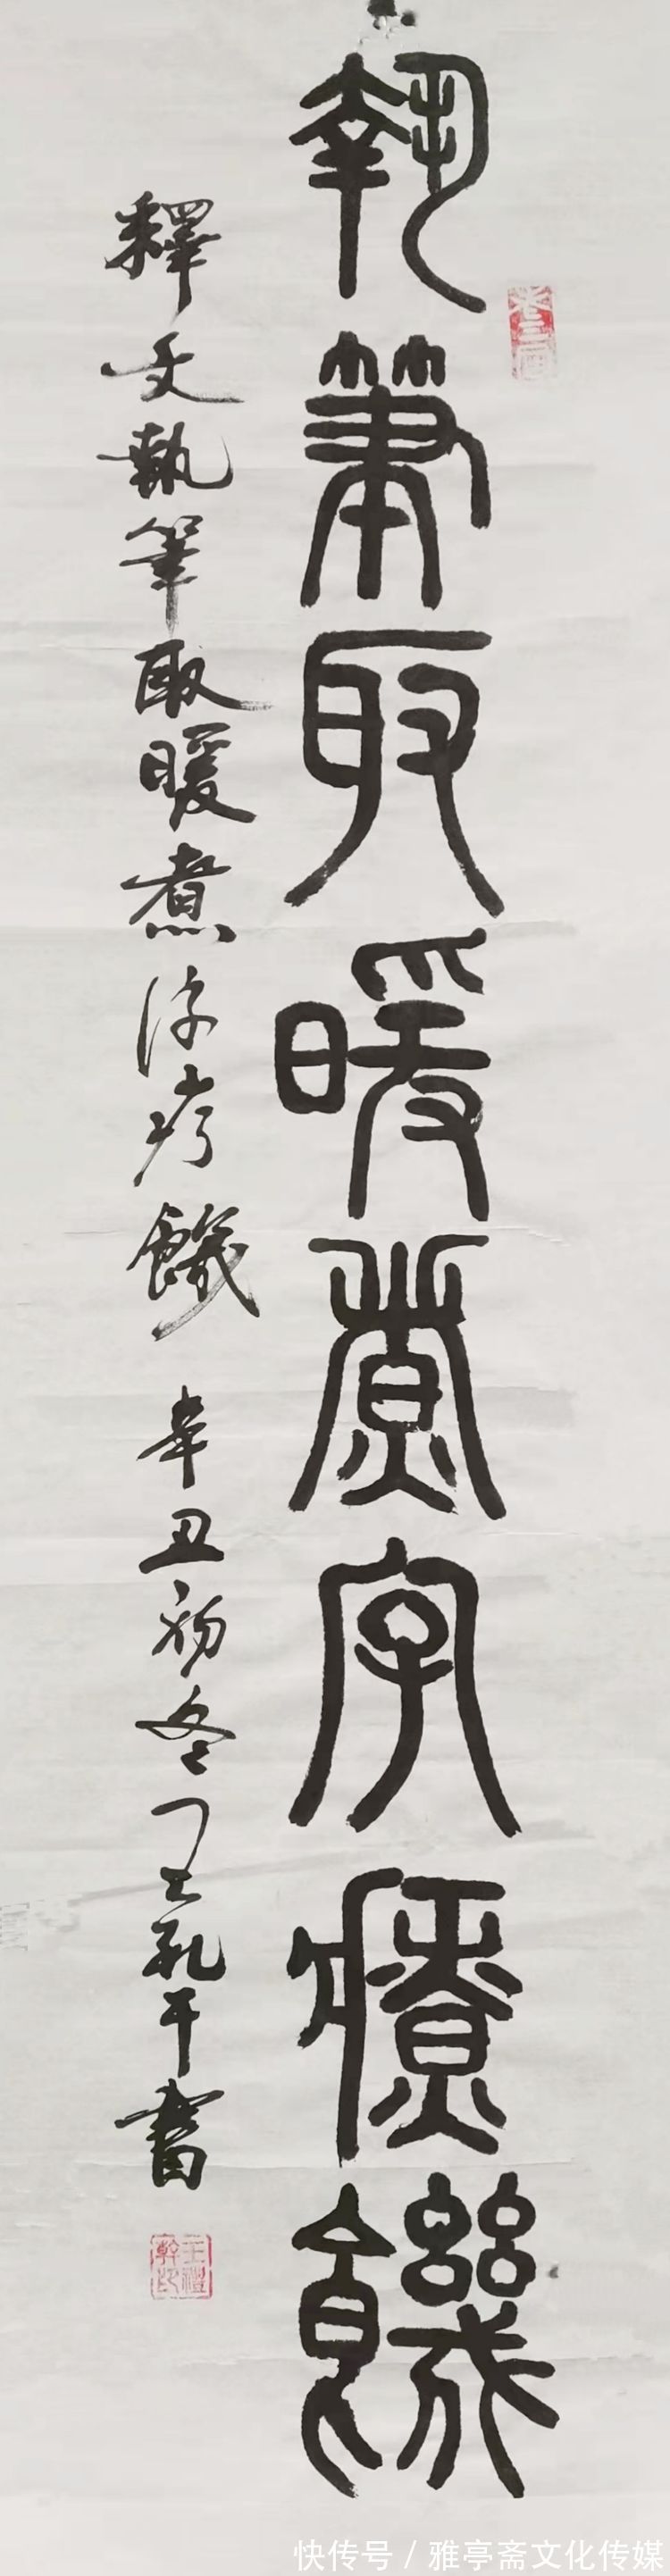 執筆取暖煮字療饑
釋文執筆取暖煮字疗饑 辛丑初冬王礼干書
王禮幹印
快传号／雅亭斋文化传媒